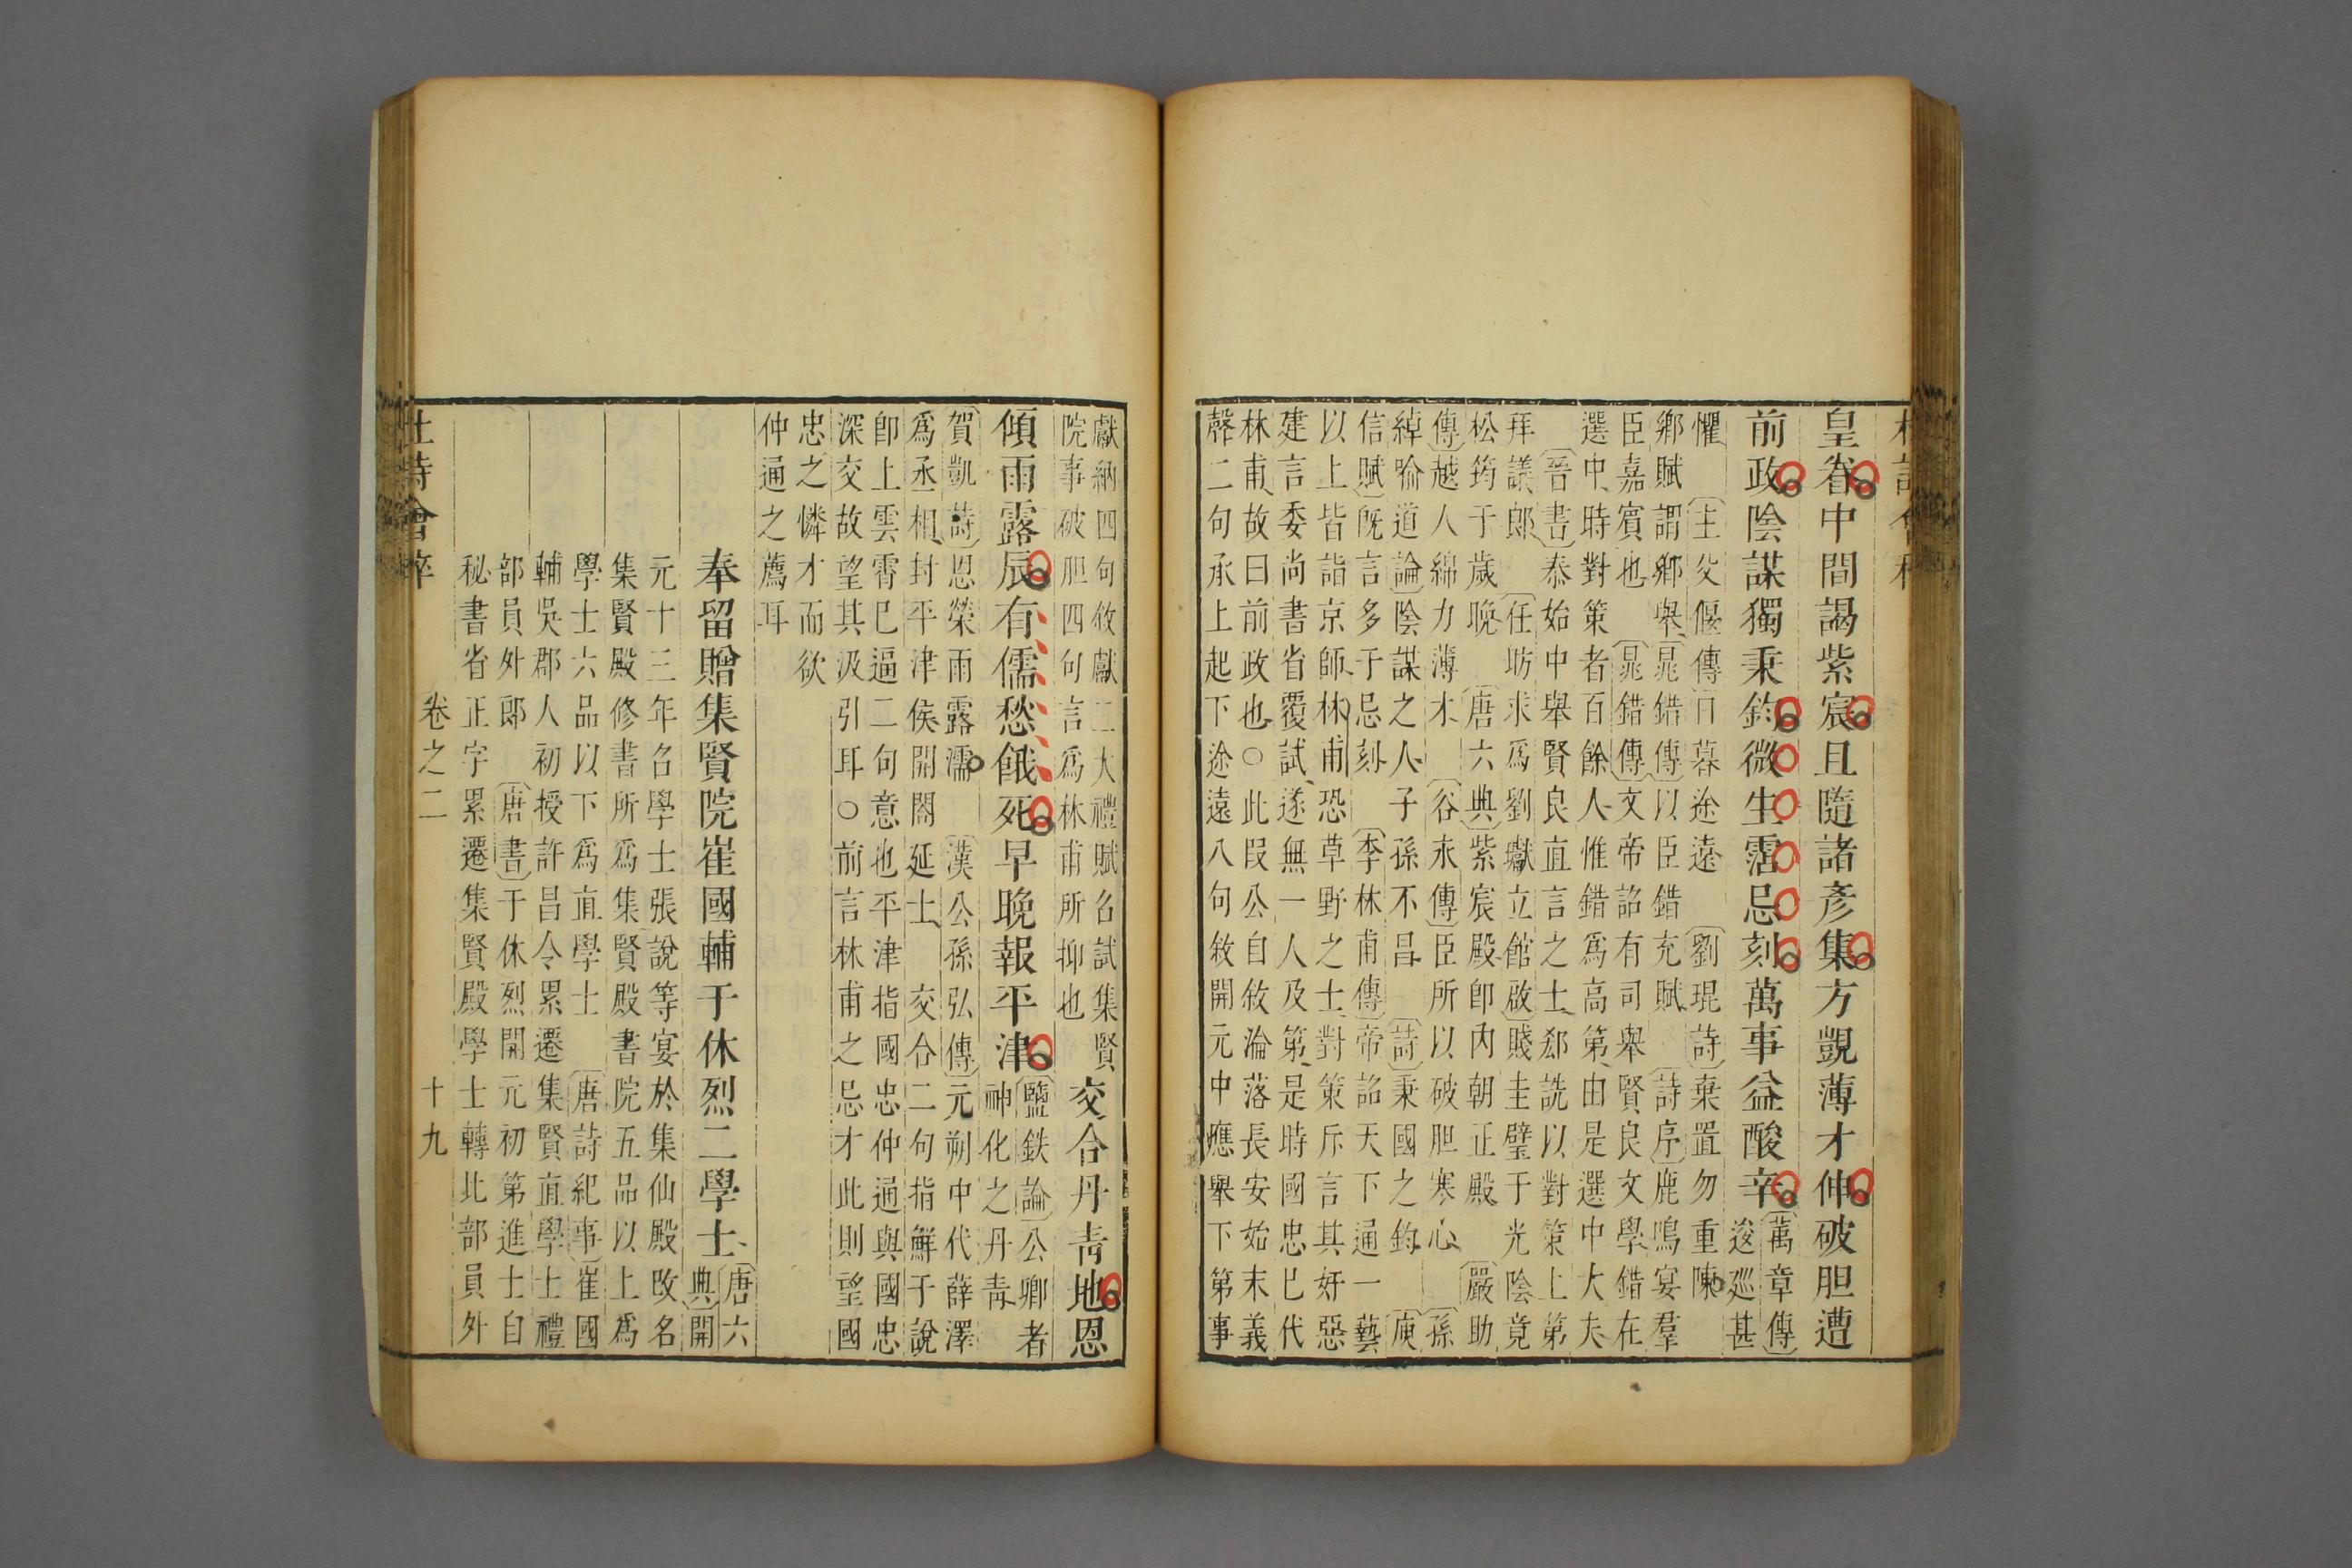 皇眷中間謁紫宸且隨諸彥集方覬薄才伸破胆遭
前政陰謀獨秉鈞微生霑忌刻萬事益酸辛
萬章傳
逡巡甚
懼 主父偃傳日暮途遠 劉琨詩棄置勿重陳
鄉賦謂鄉舉 晁錯傳以臣錯充賦 詩序鹿鳴宴羣
臣嘉賓也 晁錯傳文帝詔有司舉賢良文學錯在
選中時對策者百餘人惟錯爲高第由是選中大夫
晉書泰始中舉賢良直言之士郄詵以對策上第
拜議郎 任昉求爲劉瓛立館啟賤圭璧于光陰竟
松筠于歲晚 唐六典紫宸殿卽内朝正殿 嚴助
傳越人綿力薄材 谷永傳臣所以破胆寒心 孫
綽喻道論陰謀之人子孫不昌 詩秉國之鈞 庾
信賦旣言多于忌刻 李林甫傳帝詔天下通一藝
以上皆詣京師林甫恐草野之士對策斥言其奸惡
建言委尚書省覆試遂無一人及第是時國忠巳代
林甫故曰前政也○此段公自敘淪落長安始末義
罄二句承上起下途遠八句敘開元中應舉下第事
獻納四句敘獻二大禮賦名試集賢
院事破胆四句言爲林甫所抑也
交合丹青地恩
傾雨露辰有儒愁餓死早晚報平津
鹽鉄論公卿者
神化之丹青
賀凱詩恩榮雨露濡 漢公孫弘傳元朔中代薛澤
爲丞相封平津侯開閤延士 交合二句指鮮于說
卽上雲霄巳逼二句意也平津指國忠仲通與國忠
深交故望其汲引耳○前言林甫之忌才此則望國
忠之憐才而欲
仲通之薦耳
奉留贈集賢院崔國輔于休烈二學士
唐六
典開
元十三年召學士張說等宴於集仙殿改名
集賢殿修書所爲集賢殿書院五品以上爲
學士六品以下爲直學士 唐詩紀事崔國
輔吳郡人初授許昌令累遷集賢直學士禮
部員外郎 唐書于休烈開元初第進士自
秘書省正字累遷集賢殿學士轉比部員外
杜詩會稡 卷之二 十九